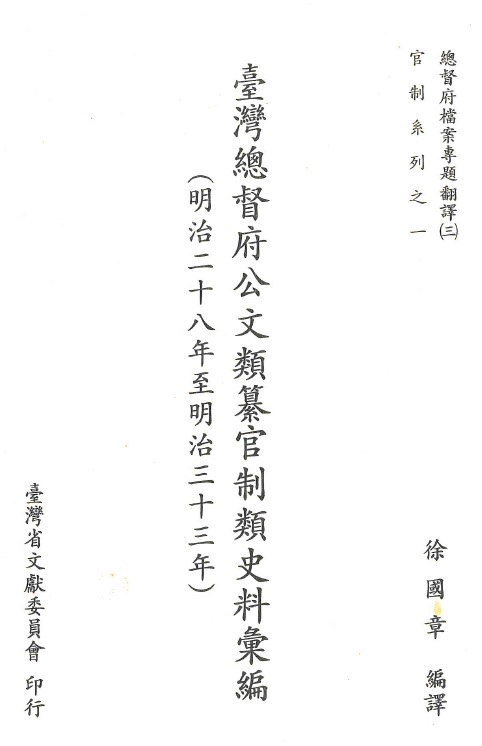 總督府檔案專題翻譯(三)
官制系列之一
徐國章 編譯
臺灣總督府公文類纂官制類史料彙編
(明治二十八年至明治三十三年)
臺灣省文獻委員會 印行